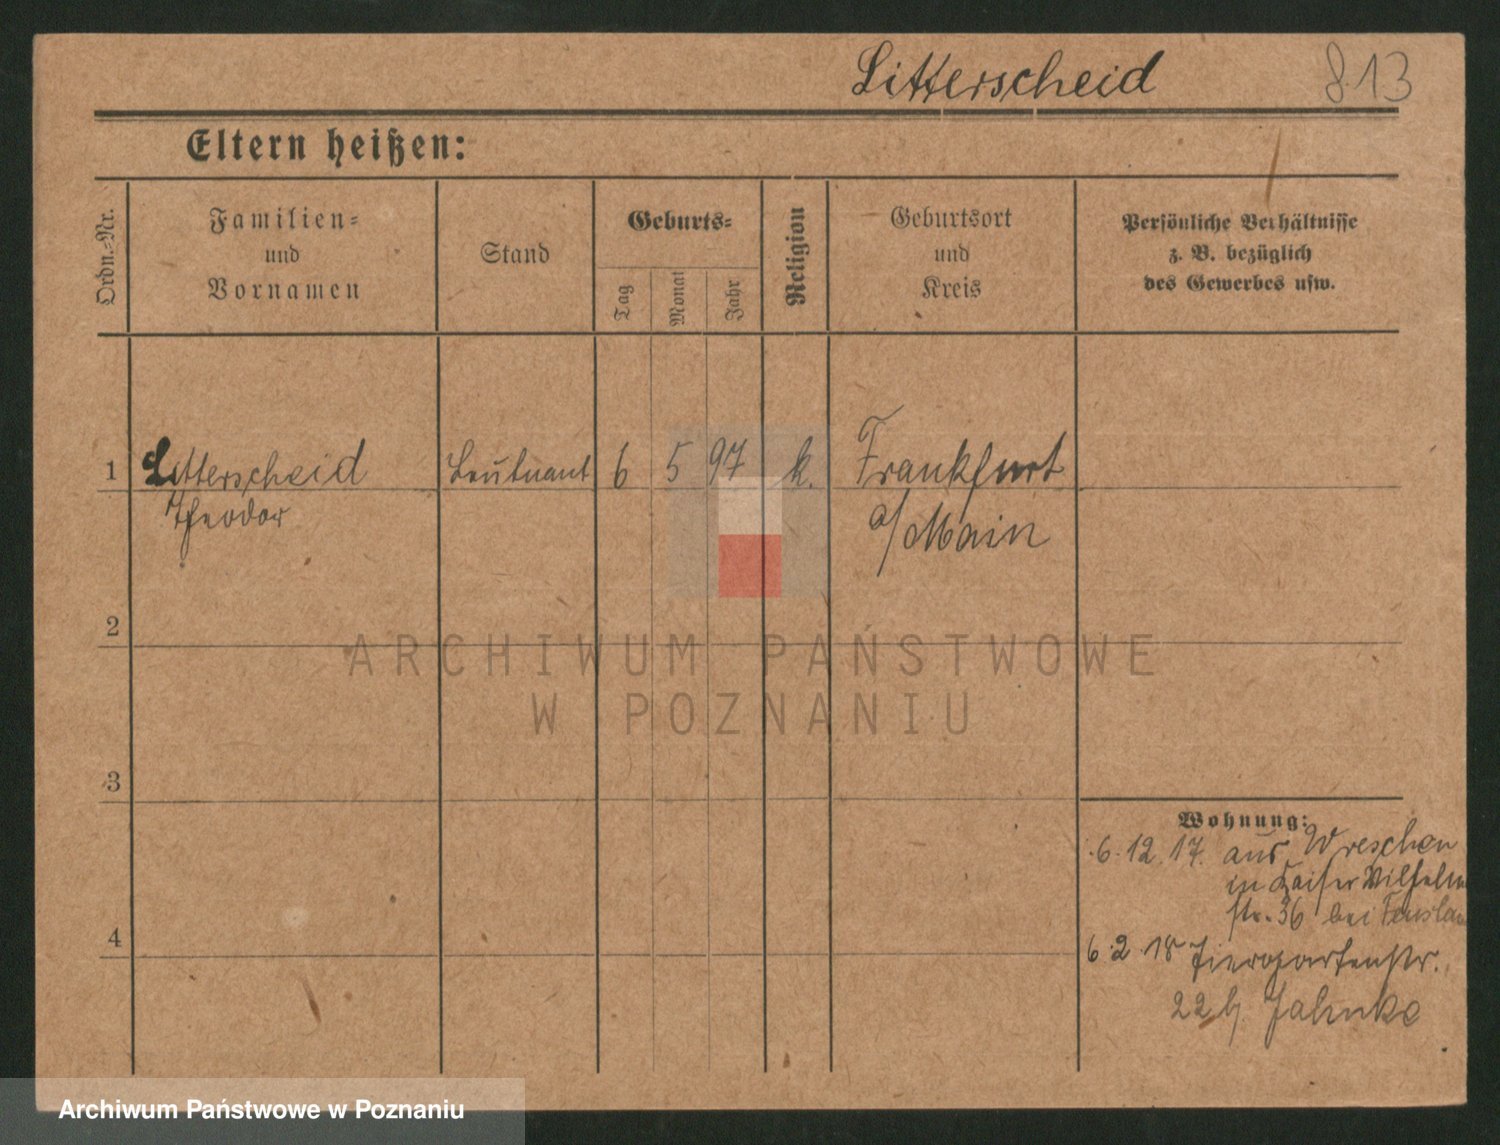 Litterscheid 813
Eltern heißen:
Ordn.-Nr.
Familien-
und
Vornamen
Stand
Geburts-
Tag
Monat
Jahr
Religion
Geburtsort
und
Kreis
Persönliche Verhältnisse
z. B. bezüglich
des Gewerbes usw.
1 Litterscheid Leutnant 6 5 97 k. Frankfurt
Theodor a/Main
2
3
4
Wohnung:
6.12.17. aus Wreschen
in Kaiser Wilhelm
str. 36 bei
6.2.18 Tiergartenstr.
22 b. Jahnke
ARCHIWUM PAŃSTWOWE
W POZNANIU
Archiwum Państwowe w Poznaniu